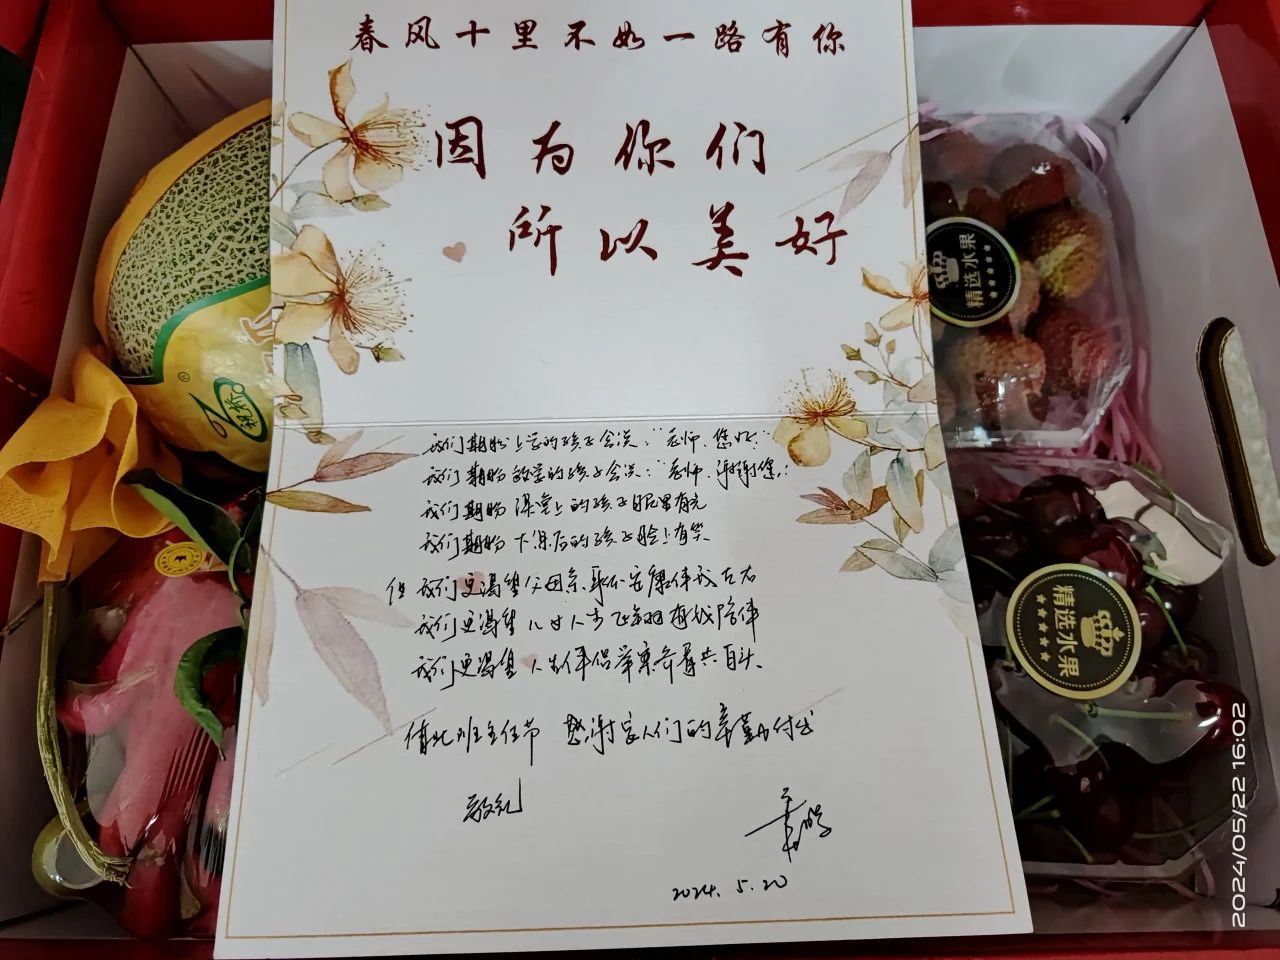 春风十里不如一路有你
因为你们
所以美好
我们期盼上学的孩子会说："老师.您好!"
我们期盼放学的孩子会说："老师.谢谢您!"
我们期盼课堂上的孩子眼里有光
我们期盼下课后的孩子脸上有笑
但我们更渴望父母亲康伴我左右
我们更渴望儿女人生征程有我陪伴
我们更渴望人生伴侣举案齐眉共白头、
值此班主任节 感谢家人们的辛勤付出
敬礼
2024.5.20
精选水果
精选水果
2024/05/22 16:02